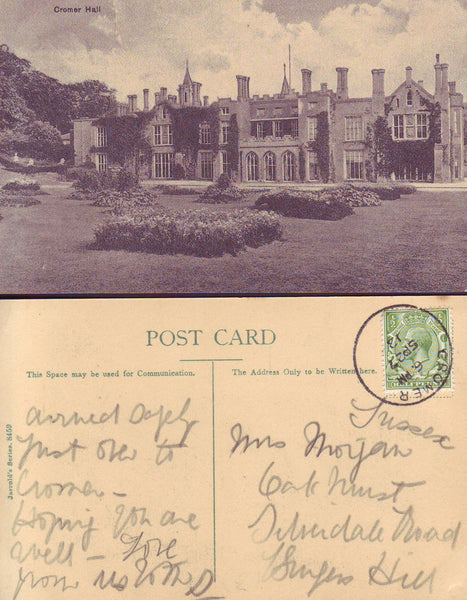 Cromer Hall
POST CARD
This Space may be used for Communication.
The Address Only to be Written here.
Jarrold's Series. 8459
CROMER
SP 23
13
arrived safely
Just over to
Cromer –
Hoping you are
well – Love
from us both
Sussex
Mrs Morgan
Oak
Silverdale Road
Burgess Hill